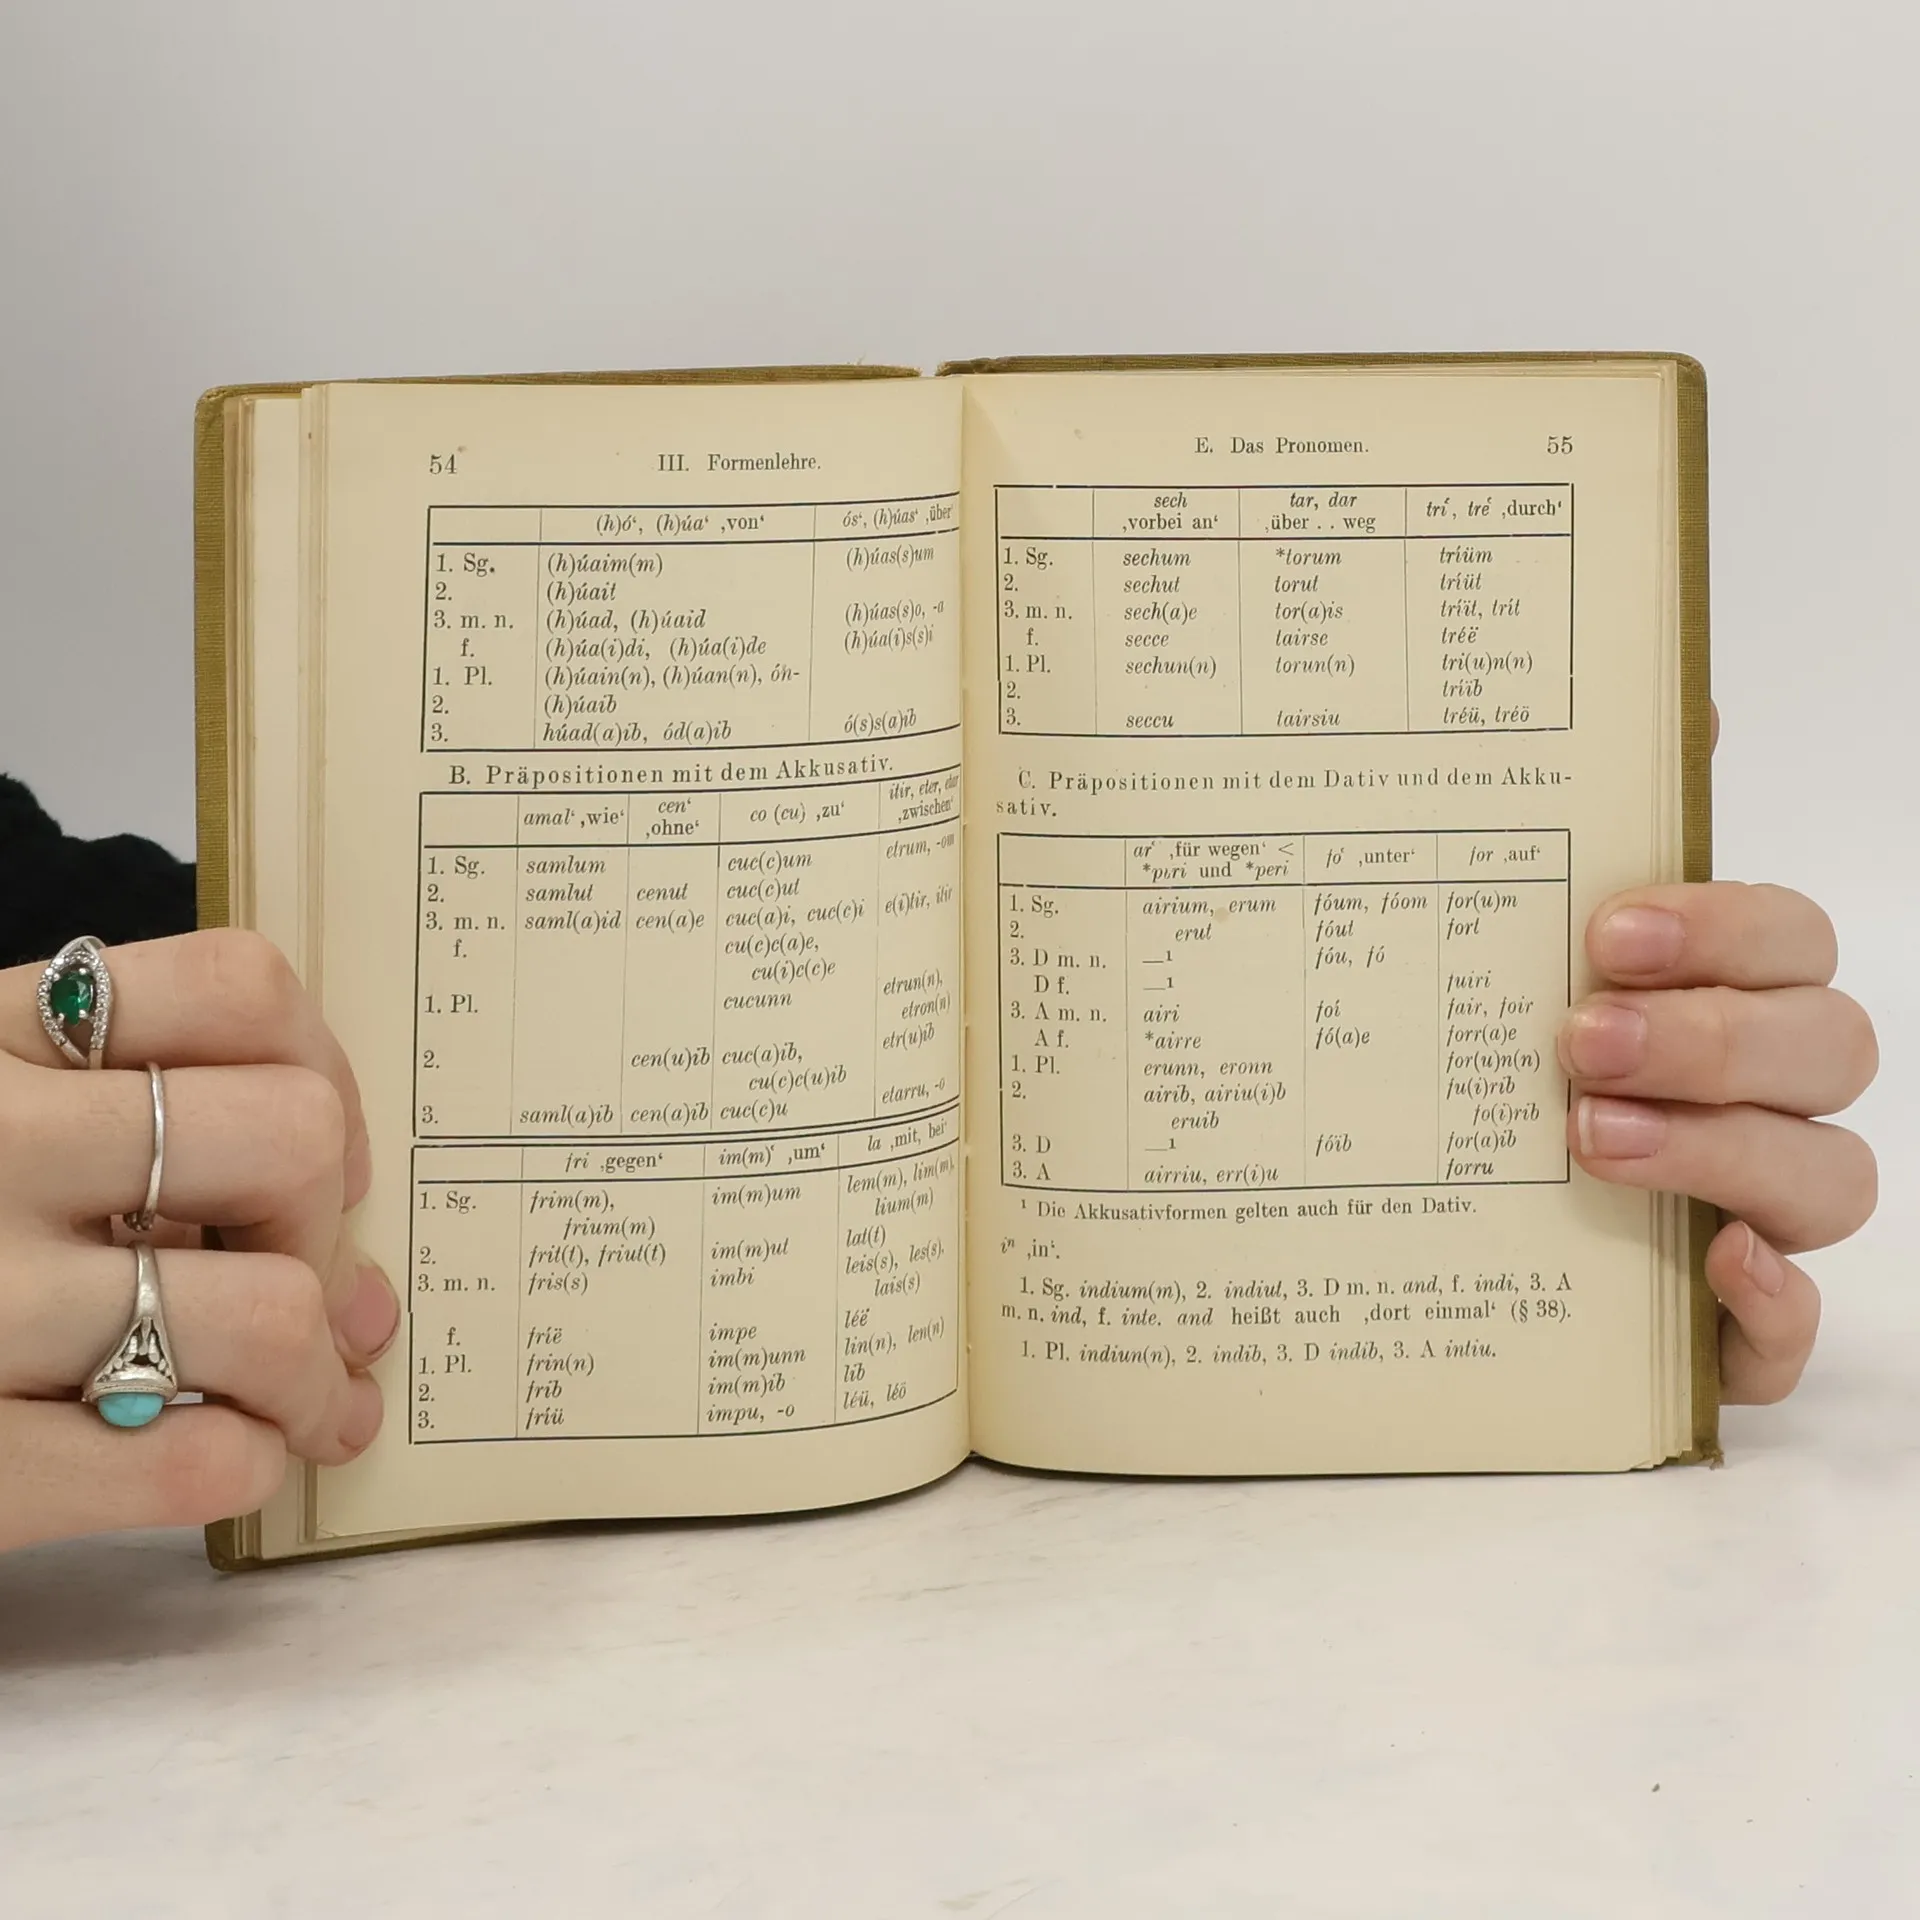 54 III. Formenlehre.
(h)ó‘, (h)úa‘ ‚von‘ ós‘, (h)úas‘ ‚über‘
1. Sg. (h)úaim(m) (h)úas(s)um
2. (h)úait
3. m. n. (h)úad, (h)úaid (h)úas(s)o, -a
f. (h)úa(i)di, (h)úa(i)de (h)úa(i)s(s)i
1. Pl. (h)úain(n), (h)úan(n), ón-
2. (h)úaib
3. húad(a)ib, ód(a)ib ó(s)s(a)ib
B. Präpositionen mit dem Akkusativ.
amal‘ ‚wie‘ cen‘ ‚ohne‘ co (cu) ‚zu‘ itir, eter, ‚zwischen‘
1. Sg. samlum cuc(c)um etrum, -om
2. samlut cenut cuc(c)ut
3. m. n. saml(a)id cen(a)e cuc(a)i, cuc(c)i e(i)tir, itir
f. cu(c)c(a)e,
cu(i)c(c)e
1. Pl. cucunn etrun(n),
etron(n)
2. cen(u)ib cuc(a)ib, etr(u)ib
cu(c)c(u)ib
3. saml(a)ib cen(a)ib cuc(c)u etarru, -o
fri ‚gegen‘ im(m)‘ ‚um‘ la ‚mit, bei‘
1. Sg. frim(m), im(m)um lem(m), lim(m),
frium(m) lium(m)
2. frit(t), friut(t) im(m)ut lat(t)
3. m. n. fris(s) imbi leis(s), les(s),
lais(s)
f. frië impe léë
1. Pl. frin(n) im(m)unn lin(n), len(n)
2. frib im(m)ib lib
3. fríü impu, -o léü, léö
E. Das Pronomen. 55
sech ‚vorbei an‘ tar, dar ‚über . . weg tri‘, tre‘ ‚durch‘
1. Sg. sechum *torum tríüm
2. sechut torut tríüt
3. m. n. sech(a)e tor(a)is tríït, trít
f. secce tairse tréë
1. Pl. sechun(n) torun(n) tri(u)n(n)
2. tríïb
3. seccu tairsiu tréü, tréö
C. Präpositionen mit dem Dativ und dem Akku-
sativ.
ar‘ ‚für wegen‘ < fo‘ ‚unter‘ for ‚auf‘
und *peri
1. Sg. airium, erum fóum, fóom for(u)m
2. erut fóut fort
3. D m. n. —¹ fóu, fó
D f. —¹ fuiri
3. A m. n. airi foí fair, foir
A f. *airre fó(a)e forr(a)e
1. Pl. erunn, eronn for(u)n(n)
2. airib, airiu(i)b fu(i)rib
eruib fo(i)rib
3. D —¹ fóïb for(a)ib
3. A airriu, err(i)u forru
¹ Die Akkusativformen gelten auch für den Dativ.
iⁿ ‚in‘.
1. Sg. indium(m), 2. indiut, 3. D m. n. and, f. indi, 3. A
m. n. ind, f. inte. and heißt auch ‚dort einmal‘ (§ 38).
1. Pl. indiun(n), 2. indib, 3. D indib, 3. A intiu.